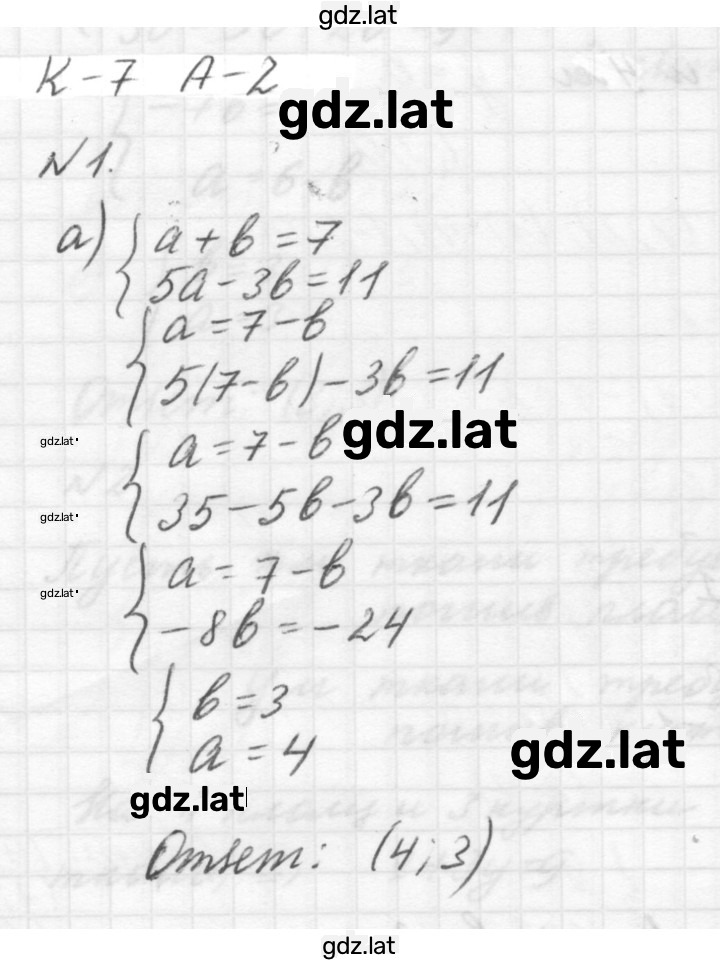 gdz.lat
К-7 А-2
gdz.lat
№1.
а) { a + b = 7
5a - 3b = 11
{ a = 7 - b
5(7 - b) - 3b = 11
gdz.lat
{ a = 7 - b
gdz.lat
35 - 5b - 3b = 11
gdz.lat
{ a = 7 - b
gdz.lat
-8b = -24
{ b = 3
a = 4
gdz.lat
gdz.lat
Ответ: (4; 3)
gdz.lat